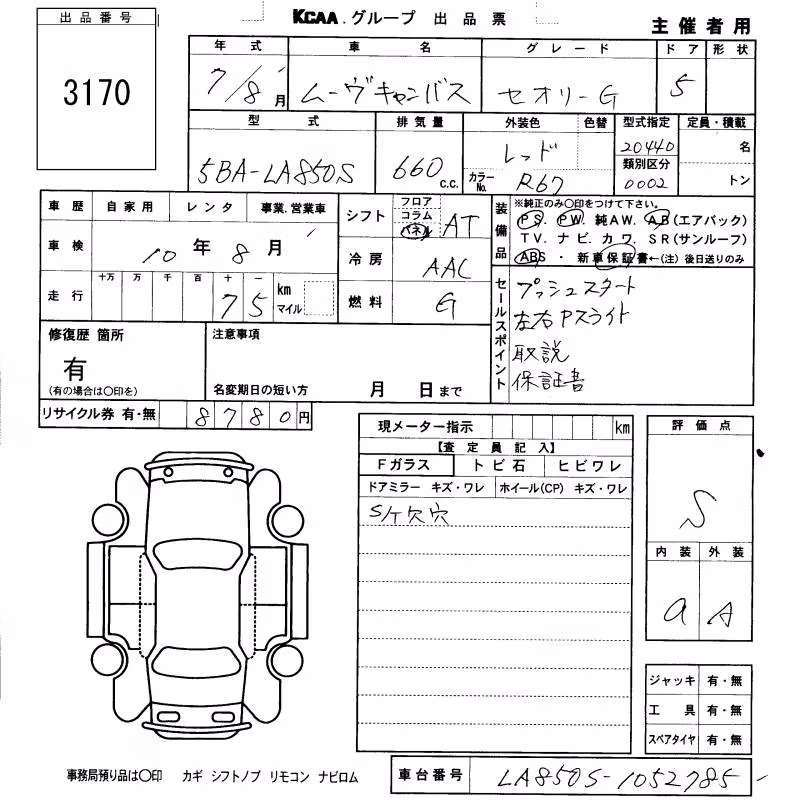 出品番号
3170
KCAA.グループ 出品票
主催者用
年式 車名 グレード ドア 形状
7/8月 ムーヴキャンバス セオリーG 5
型式 排気量 外装色 色替 型式指定 定員・積載
5BA-LA850S 660 c.c. レッド 20440 名
カラーNo. R67 類別区分 0002 トン
車歴 自家用 レンタ 事業.営業車
シフト フロア コラム パネル AT
車検 10年8月
冷房 AAC
走行 十万 万 千 百 十 一 km マイル
75
燃料 G
装備品
※純正のみ○印をつけて下さい。
PS. PW. 純AW. AB(エアバック)
TV. ナビ. カワ. SR(サンルーフ)
ABS ・ 新車保証書←(注)後日送りのみ
セールスポイント
プッシュスタート
左右Pスライド
取説
保証書
修復歴 箇所
有
(有の場合は○印を)
注意事項
名変期日の短い方 月 日まで
リサイクル券 有・無 8780円
現メーター指示 km
【査定員記入】
Fガラス トビ石 ヒビワレ
ドアミラー キズ・ワレ ホイール(CP) キズ・ワレ
Sケ欠穴
評価点
S
内装 外装
a A
ジャッキ 有・無
工具 有・無
スペアタイヤ 有・無
事務局預り品は○印 カギ シフトノブ リモコン ナビロム
車台番号 LA850S-1052785